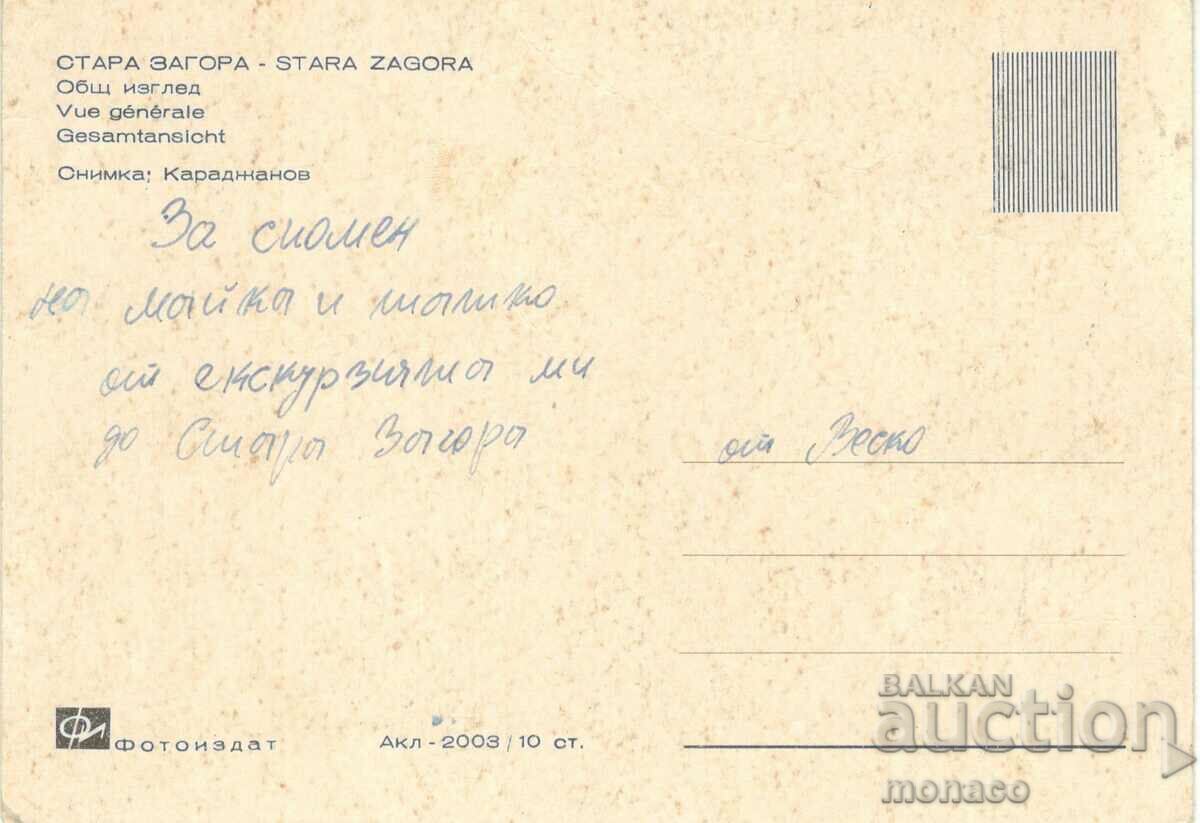 СТАРА ЗАГОРА - STARA ZAGORA
Общ изглед
Vue générale
Gesamtansicht
Снимка: Караджанов
За спомен
на майка и татко
от екскурзията ми
до Стара Загора
от Веско
Фотоиздат
Акл - 2003 / 10 ст.
BALKAN
auction
monaco